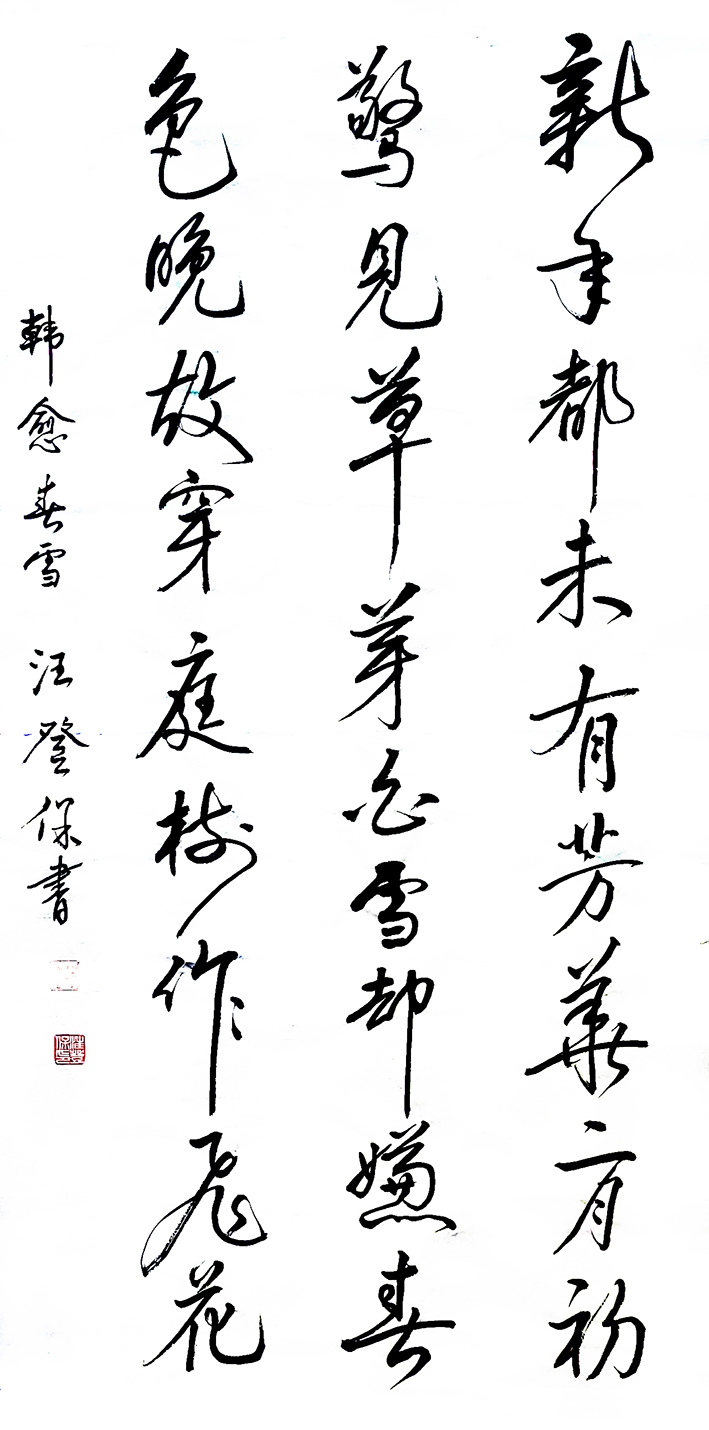 新年都未有芳華二月初
驚見草芽白雪却嫌春
色晚故穿庭樹作飛花
韩愈春雪 汪登保書